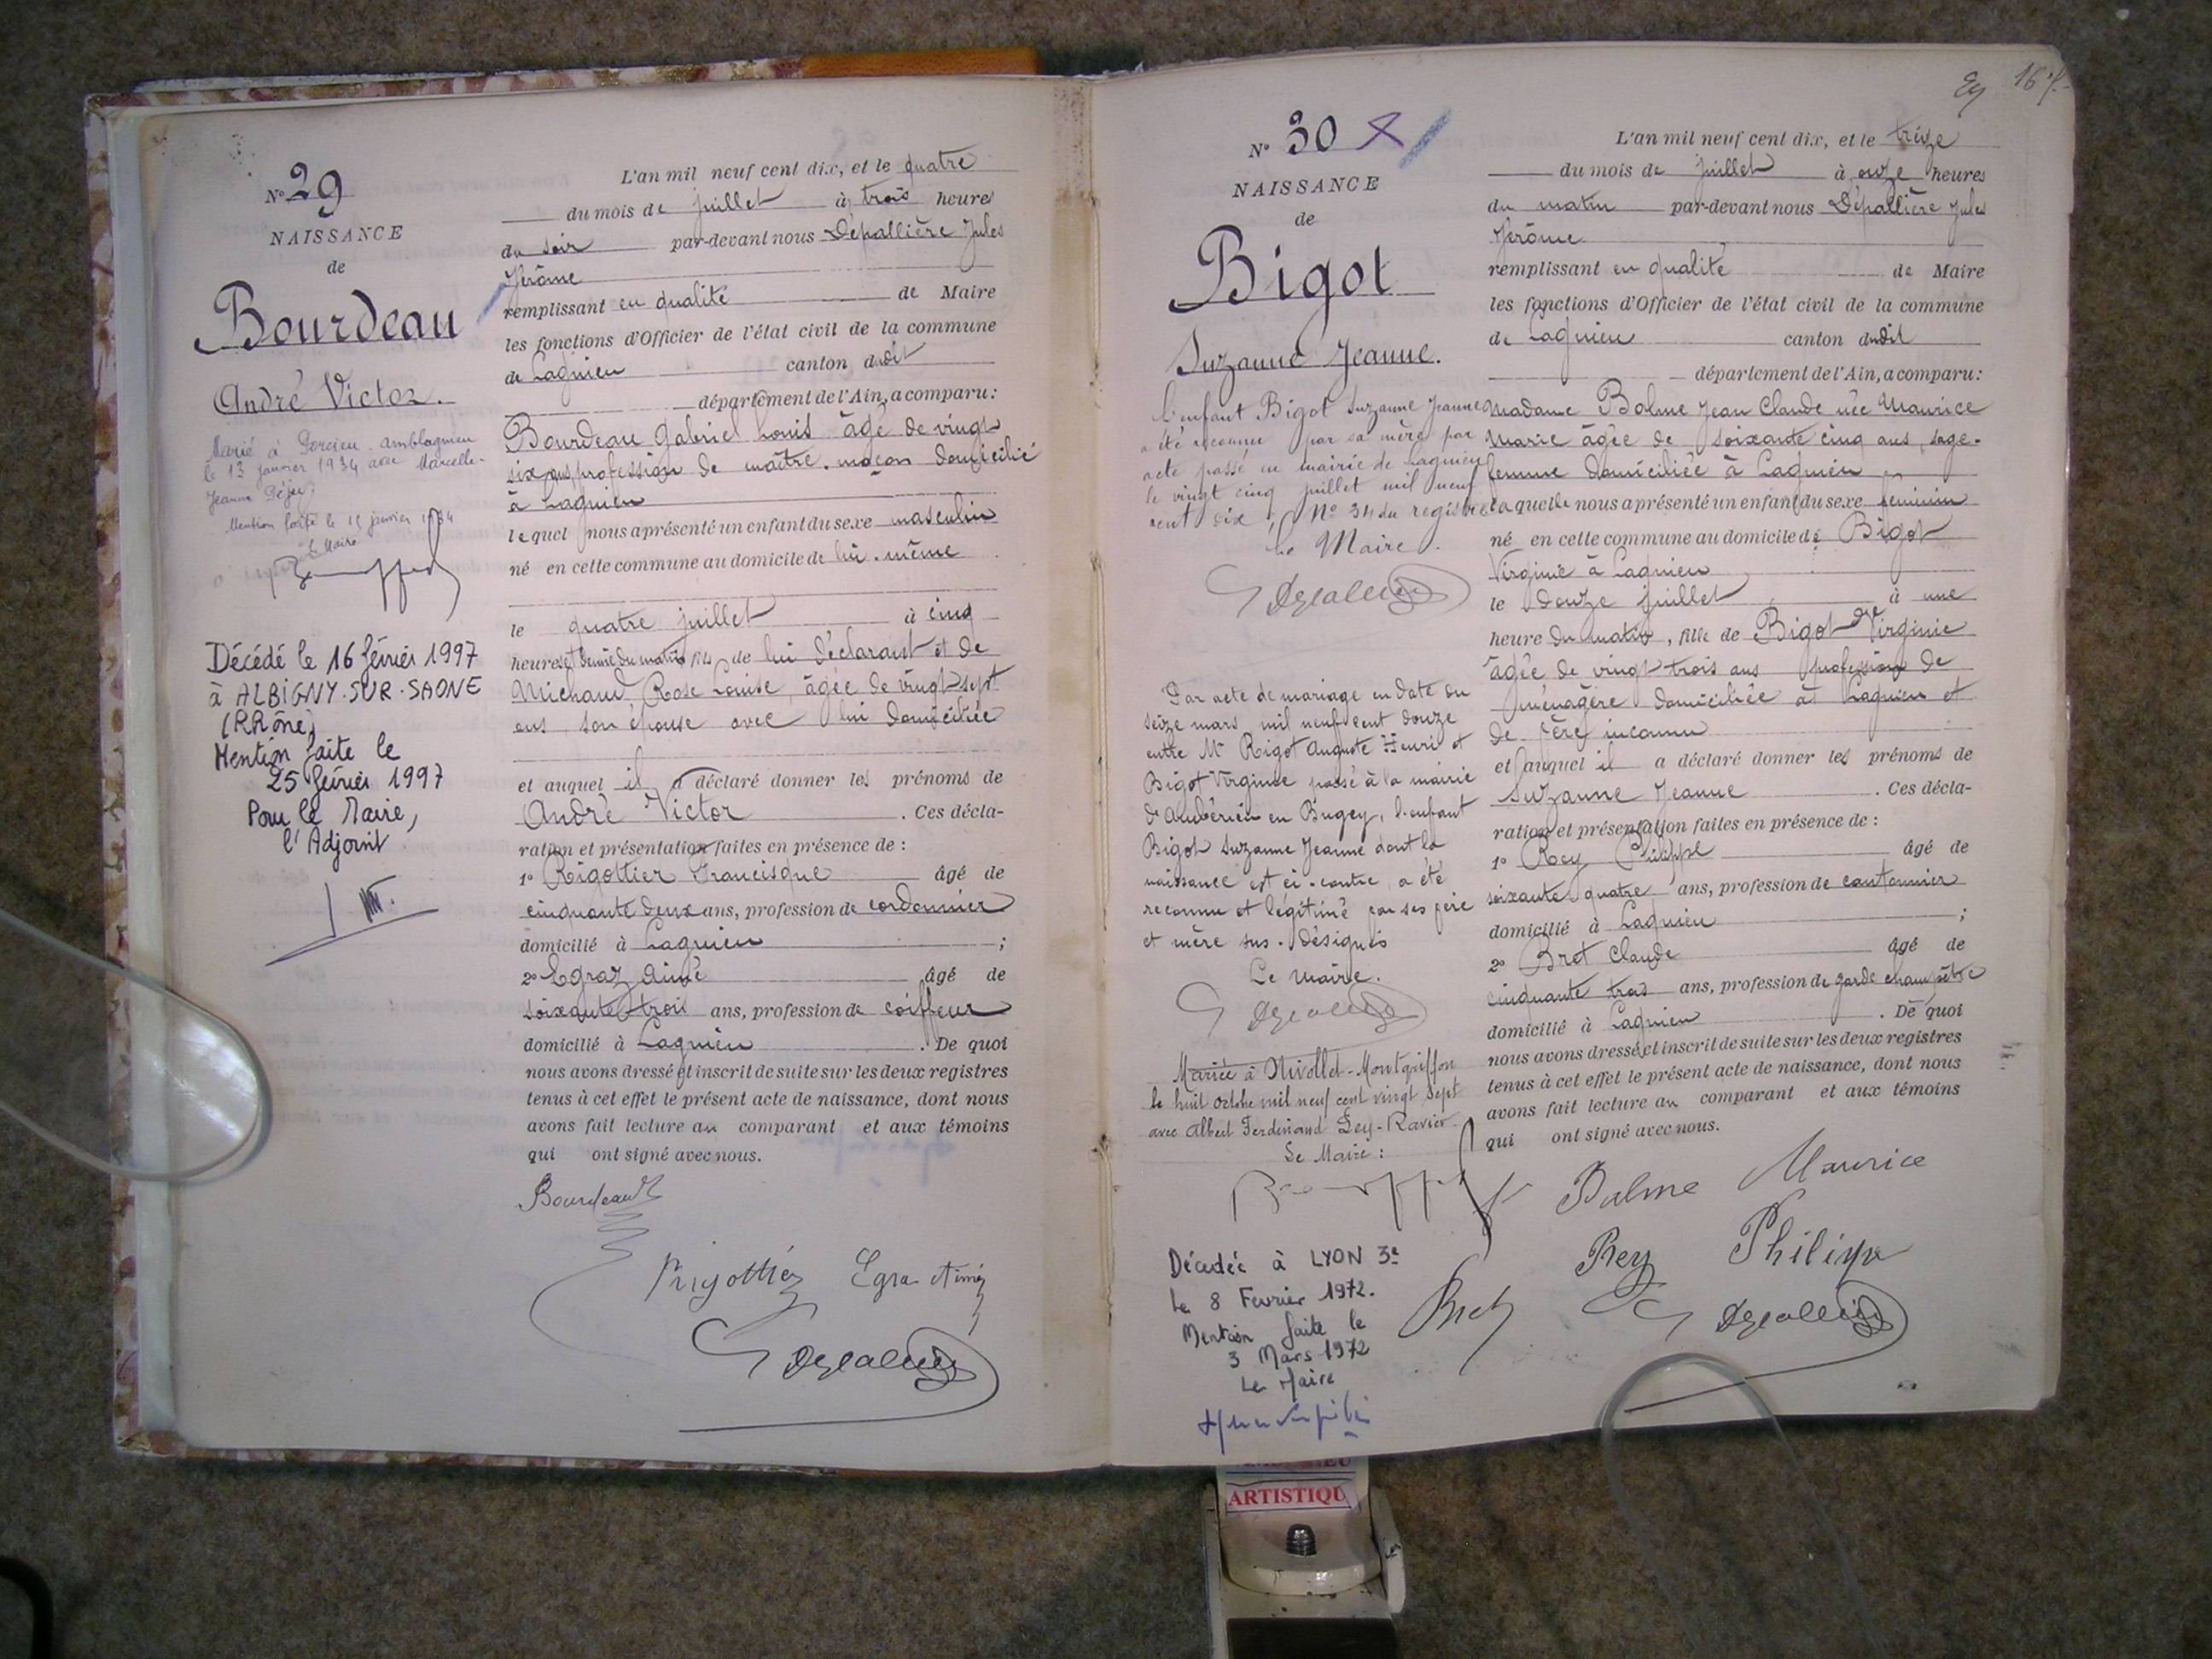 N° 29
NAISSANCE
de
Bourdeau
André Victor.
Marié à Porcieu-Amblagnieu
le 13 janvier 1934 avec Marcelle-
Jeanne
Mention faite le janvier 1934
Le Maire
Décédé le 16 février 1997
à ALBIGNY-SUR-SAONE
(Rhône)
Mention faite le
25 février 1997
Pour le Maire,
l'Adjoint
L'an mil neuf cent dix, et le quatre
du mois de juillet à trois heures
du soir par-devant nous Dépallière Jules
Jérôme
remplissant en qualité de Maire
les fonctions d'Officier de l'état civil de la commune
de Lagnieu canton dudit
département de l'Ain, a comparu:
Bourdeau Gabriel Louis âgé de vingt
six ans profession de maître-maçon domicilié
à Lagnieu
lequel nous a présenté un enfant du sexe masculin
né en cette commune au domicile de lui-même
le quatre juillet à cinq
heures et demie du matin fils de lui déclarant et de
Michaud Rose Louise, âgée de vingt-sept
ans son épouse avec lui domiciliée
et auquel il a déclaré donner les prénoms de
André Victor. Ces décla-
ration et présentation faites en présence de :
1° Rigottier Francisque âgé de
cinquante deux ans, profession de cordonnier
domicilié à Lagnieu ;
2° Egraz Aimé âgé de
soixante-trois ans, profession de coiffeur
domicilié à Lagnieu. De quoi
nous avons dressé et inscrit de suite sur les deux registres
tenus à cet effet le présent acte de naissance, dont nous
avons fait lecture au comparant et aux témoins
qui ont signé avec nous.
Bourdeau
Rigottier Egra Aimé
Depallière
16
N° 30
NAISSANCE
de
Bigot
Suzanne Jeanne.
L'enfant Bigot Suzanne Jeanne
a été reconnu par sa mère par
acte passé en mairie de Lagnieu
le vingt cinq juillet mil neuf
cent dix, N° 34 du registre
Le Maire.
Depallière
Par acte de mariage en date du
seize mars mil neuf cent douze
entre Mr Rigot Auguste Henri et
Bigot Virginie passé à la mairie
d'Ambérieu en Bugey, l'enfant
Bigot Suzanne Jeanne dont la
naissance est ci-contre a été
reconnu et légitimé par ses père
et mère sus-désignés
Le Maire.
Depallière
Mariée à Nivollet-Montgriffon
le huit octobre mil neuf cent vingt sept
avec Albert Ferdinand Ley-Ravier
Le Maire :
Décédée à LYON 3e
le 8 Février 1972.
Mention faite le
3 Mars 1972
Le Maire
L'an mil neuf cent dix, et le treize
du mois de juillet à onze heures
du matin par-devant nous Dépallière Jules
Jérôme
remplissant en qualité de Maire
les fonctions d'Officier de l'état civil de la commune
de Lagnieu canton dudit
département de l'Ain, a comparu:
Madame Balme Jean Claude née Maurice
Marie âgée de soixante cinq ans sage-
femme domiciliée à Lagnieu
laquelle nous a présenté un enfant du sexe féminin
né en cette commune au domicile de Bigot
Virginie à Lagnieu
le douze juillet à une
heure du matin, fille de Bigot Virginie
âgée de vingt-trois ans profession de
ménagère domiciliée à Lagnieu et
de père inconnu
et auquel il a déclaré donner les prénoms de
Suzanne Jeanne. Ces décla-
ration et présentation faites en présence de :
1° Rey Philippe âgé de
soixante quatre ans, profession de cantonnier
domicilié à Lagnieu ;
2° Bret Claude âgé de
cinquante trois ans, profession de garde champêtre
domicilié à Lagnieu. De quoi
nous avons dressé et inscrit de suite sur les deux registres
tenus à cet effet le présent acte de naissance, dont nous
avons fait lecture au comparant et aux témoins
qui ont signé avec nous.
Balme Maurice
Rey Philippe
Bret Depallière
ARTISTIQU